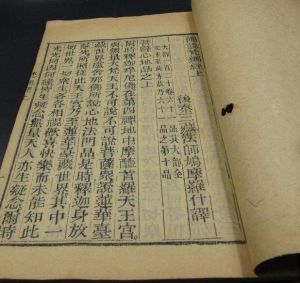 佛說梵網經卷上
後秦三藏法師鳩摩羅什譯
菩薩心地品之上
爾時釋迦牟尼佛在第四禪地中摩醯首羅天王宮
與無量大梵天王不可說不可說菩薩衆說蓮華臺
藏世界盧舍那佛所說心地法門品是時釋迦身放
慧光所照從此天王宮乃至蓮華臺藏世界其中一
切世界一切衆生各各相視歡喜快樂而未能知此
光光何因何緣皆生疑念無量天人亦生疑念爾時